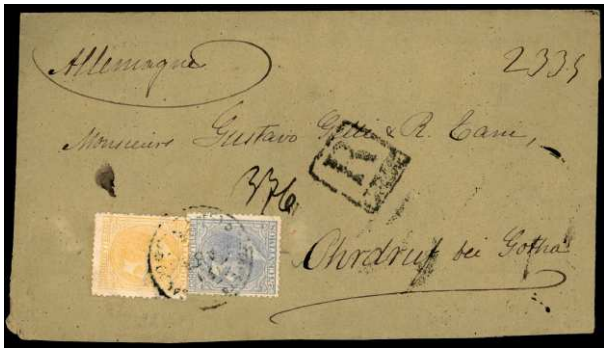 Allemagne 2335
Monsieurs Gustavo & R.
R
376
Ohrdruf bei Gotha